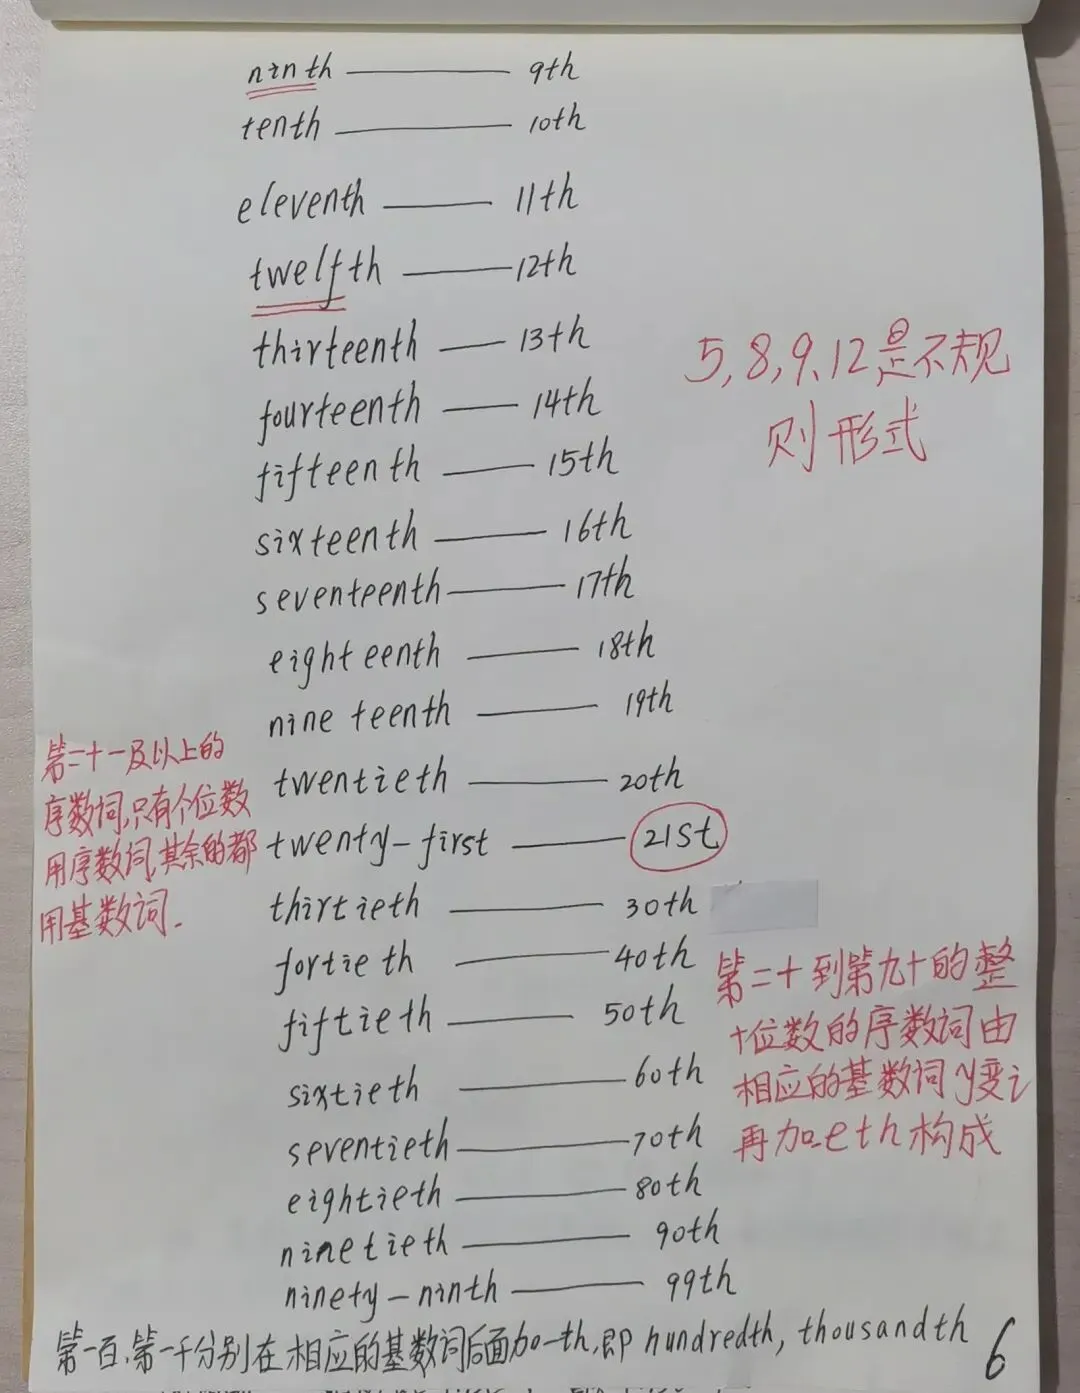 ninth —— 9th
tenth —— 10th
eleventh —— 11th
twelfth —— 12th
thirteenth —— 13th
fourteenth —— 14th
fifteenth —— 15th
sixteenth —— 16th
seventeenth —— 17th
eighteenth —— 18th
nineteenth —— 19th
twentieth —— 20th
twenty-first —— 21st
thirtieth —— 30th
fortieth —— 40th
fiftieth —— 50th
sixtieth —— 60th
seventieth —— 70th
eightieth —— 80th
ninetieth —— 90th
ninety-ninth —— 99th
5,8,9,12,是不规
则形式
第二十一及以上的
序数词,只有个位数
用序数词,其余的都
用基数词.
第二十到第九十的整
十位数的序数词由
相应的基数词y变i
再加eth构成
第一百,第一千分别在相应的基数词后面加-th,即hundredth, thousandth
6